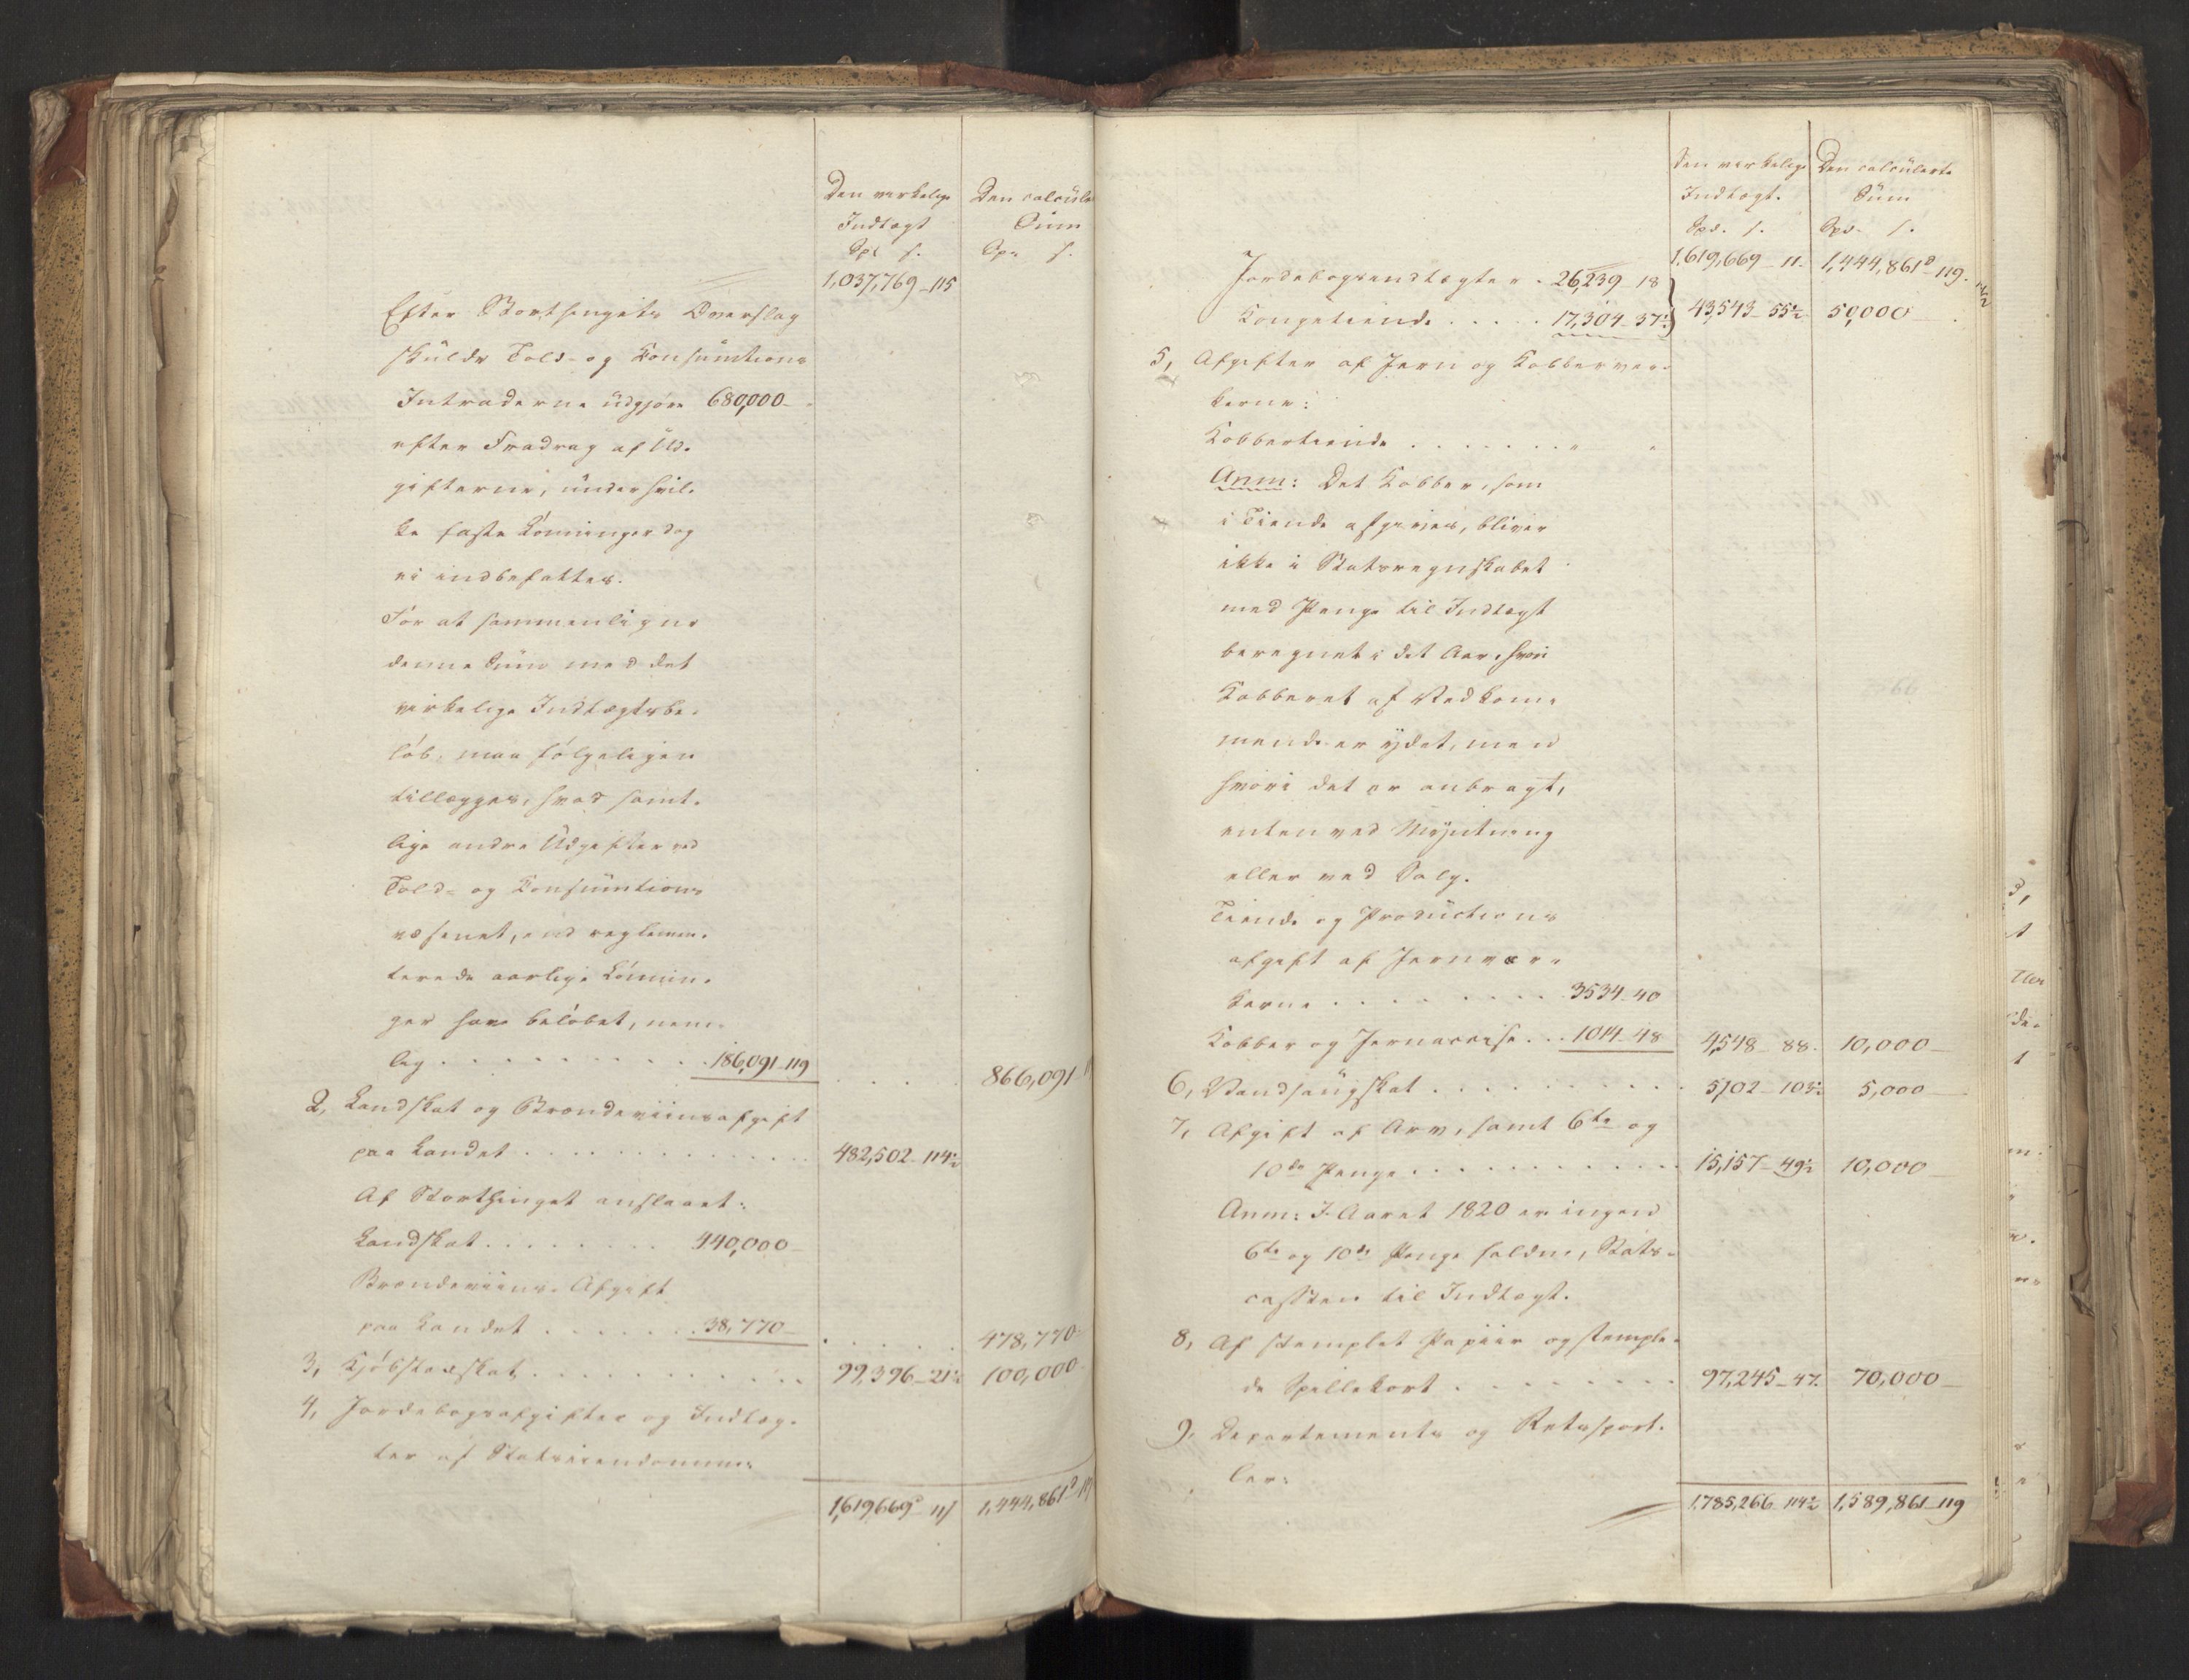 Den virkelige Den calcule
Indtægt Sum
Spd s. Spd s.
1,037,769-115
Efter Storthingets Overslag
skulde Told- og Consumtions
Intraderne udgjøre 680,000-
efter Fradrag af Ud-
gifterne, under hvil-
ke faste Lønninger dog
ei indbefattes.
For at sammenligne
denne Sum med det
virkelige Indtægtsbe-
løb, maa følgeligen
tillægges, hvad samt-
lige andre Udgifter ved
Told- og Consumtions
væsenet, end reglemen-
terede aarlige Lønnin-
ger have beløbet, nem-
lig . . . . . . . . . 186,091-119 . . . . 866,091-11
2, Landskat og Brændeviinsafgift
paa Landet . . . . . . . . . . . . . 482,502-114½
Af Storthinget anslaaet:
Landskat . . . . . . . . 440,000-
Brændeviins-Afgift
paa Landet . . . . . . 38,770- . . . . . 478,770-
3, Kjøbstædskat . . . . . . . . . . . 99,396-21½ 100,000-
4, Jordebogsafgifter og Indtæg-
ter af Statseiendomme:
1,619,669-11 1,444,861-119
Den virkelige Den calculerte
Indtægt. Sum
Spd. s. Spd. s.
1,619,669-11- 1,444,861-119.
Jordebogsindtægter . 26,239-18
Kongetiende . . . . . 17,304-37½ 43,543-55½ 50,000-
5, Afgifter af Jern og Kobberver-
kerne:
Kobbertiende . . . . . . . " "
Anm: Det Kobber, som
i Tiende afgives, bliver
ikke i Statsregnskabet
med Penge til Indtægt
beregnet i det Aar, hvori
Kobberet af Vedkom-
mende er ydet, men
hvori det er anbragt,
enten ved Myntning
eller ved Salg.
Tiende og Productions
afgift af Jernvær-
kerne . . . . . . . . . 3534-40
Kobber og Jernaccise . . . 1014-48 4,548-88. 10,000-
6, Vandsaugskat . . . . . . . . . . 5,102-103½ 5,000-
7, Afgift af Arv, samt 6te og
10de Penge . . . . . . . . . . . 15,157-49½ 10,000-
Anm: I Aaret 1820 er ingen
6te og 10de Penge falden Stats-
cassen til Indtægt.
8, Af stemplet Papiir og stemple-
de Spillekort . . . . . . . . 97,245-47. 70,000-
9, Departements og Retssport-
ler:
1,785,266-114½ 1,589,861-119